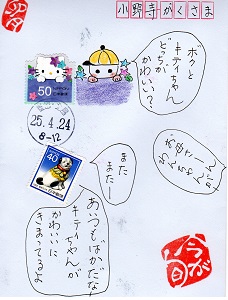 小野寺がくさま
ボクと
キティちゃん
どっちが
かわいい？
50
25.4.24
8-12
40
また
また―
あいつもばかだな
キティちゃんが
かわいいに
きまってるよ
今が
旬